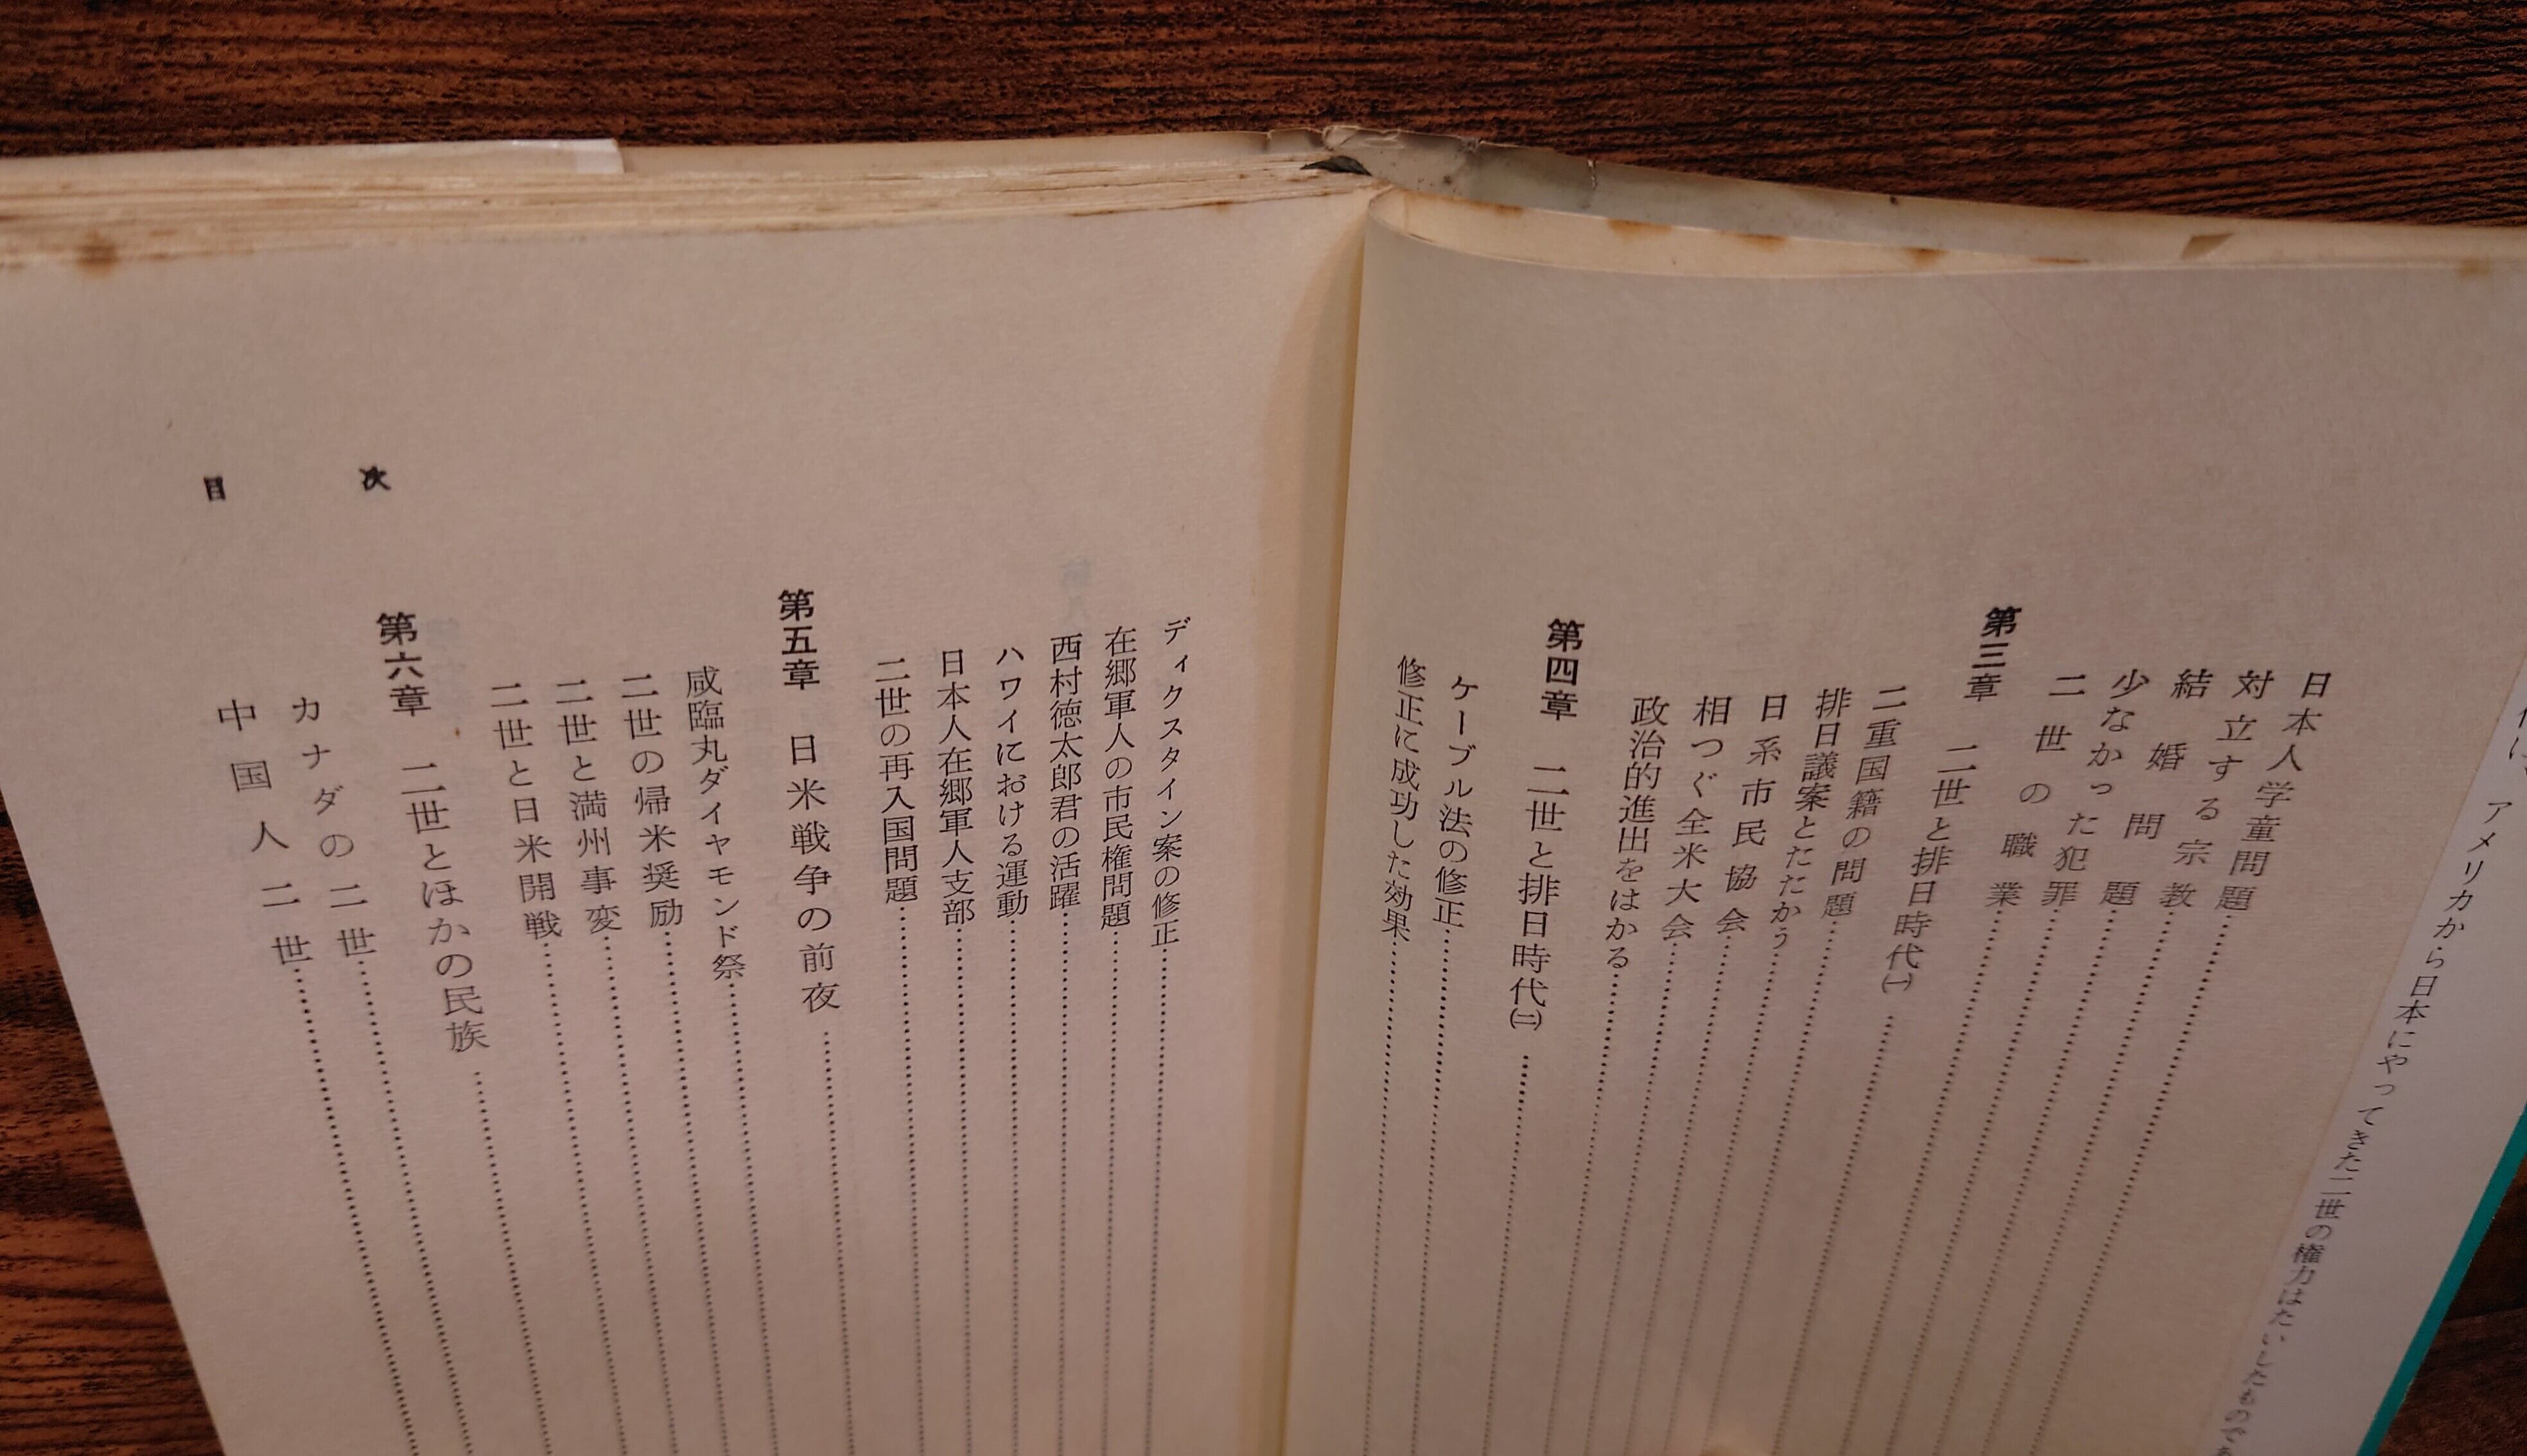 アメリカから日本にやってきた二世の権力はたいしたもので
日本人学童問題
対立する宗教
結婚問題
少なかった犯罪
二世の職業
第三章 二世と排日時代㈠
二重国籍の問題
排日議案とたたかう
日系市民協会
相つぐ全米大会
政治的進出をはかる
第四章 二世と排日時代㈡
ケーブル法の修正
修正に成功した効果
ディクスタイン案の修正
在郷軍人の市民権問題
西村徳太郎君の活躍
ハワイにおける運動
日本人在郷軍人支部
二世の再入国問題
第五章 日米戦争の前夜
咸臨丸ダイヤモンド祭
二世の帰米奨励
二世と満州事変
二世と日米開戦
第六章 二世とほかの民族
カナダの二世
中国人二世
目次